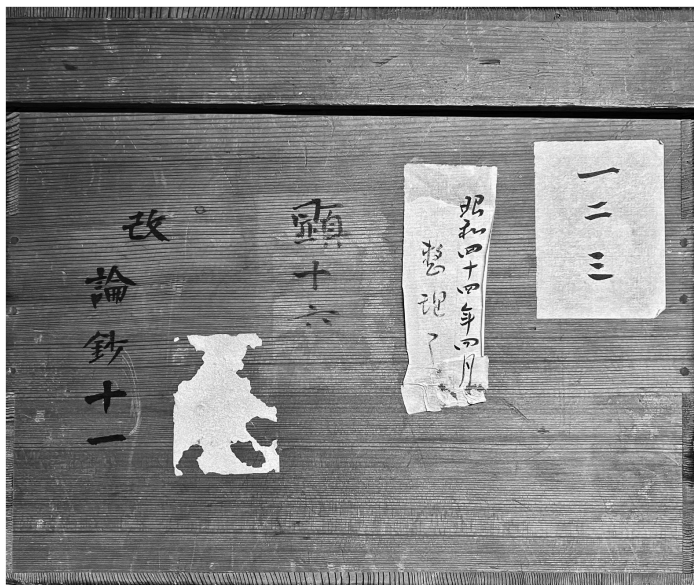 一二三
昭和四十四年四月
整理了
顕十六
改
論鈔十一